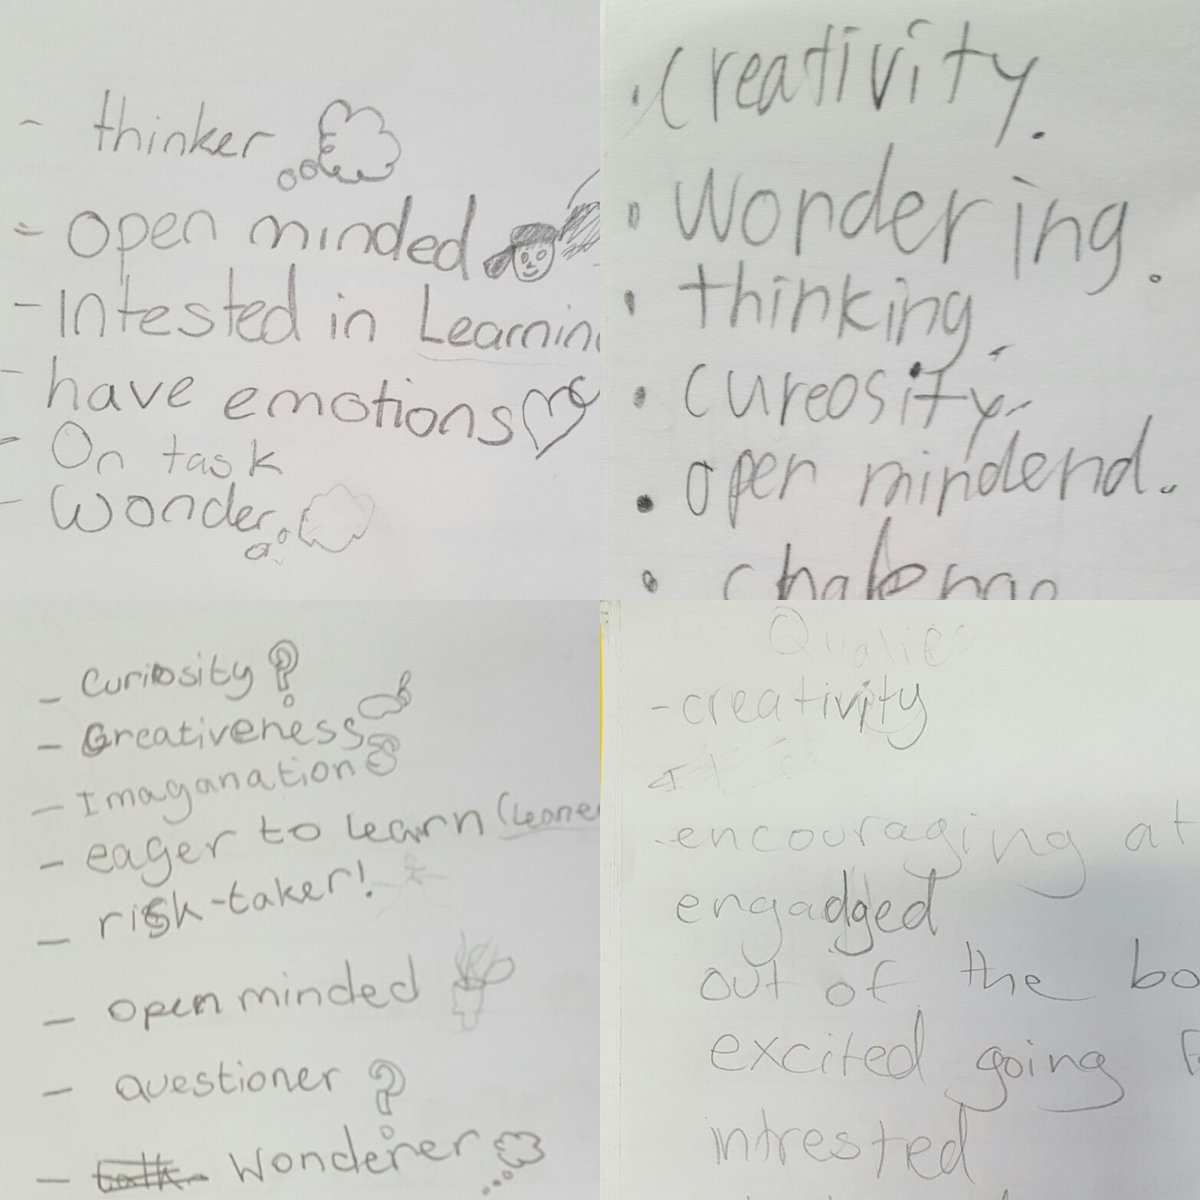 - thinker
- open minded
- Intested in Learnin
- have emotions
- On task
- wonder
• creativity.
• wondering.
• thinking.
• cureosity.
• open mindend.
- Curiosity ?
- Creativeness
- Imaganation
- eager to learn (Leane
- risk-taker!
- open minded
- questioner ?
- Wonderer
Qualies
- creativity
- encouraging at
engadged
out of the bo
excited going
intrested